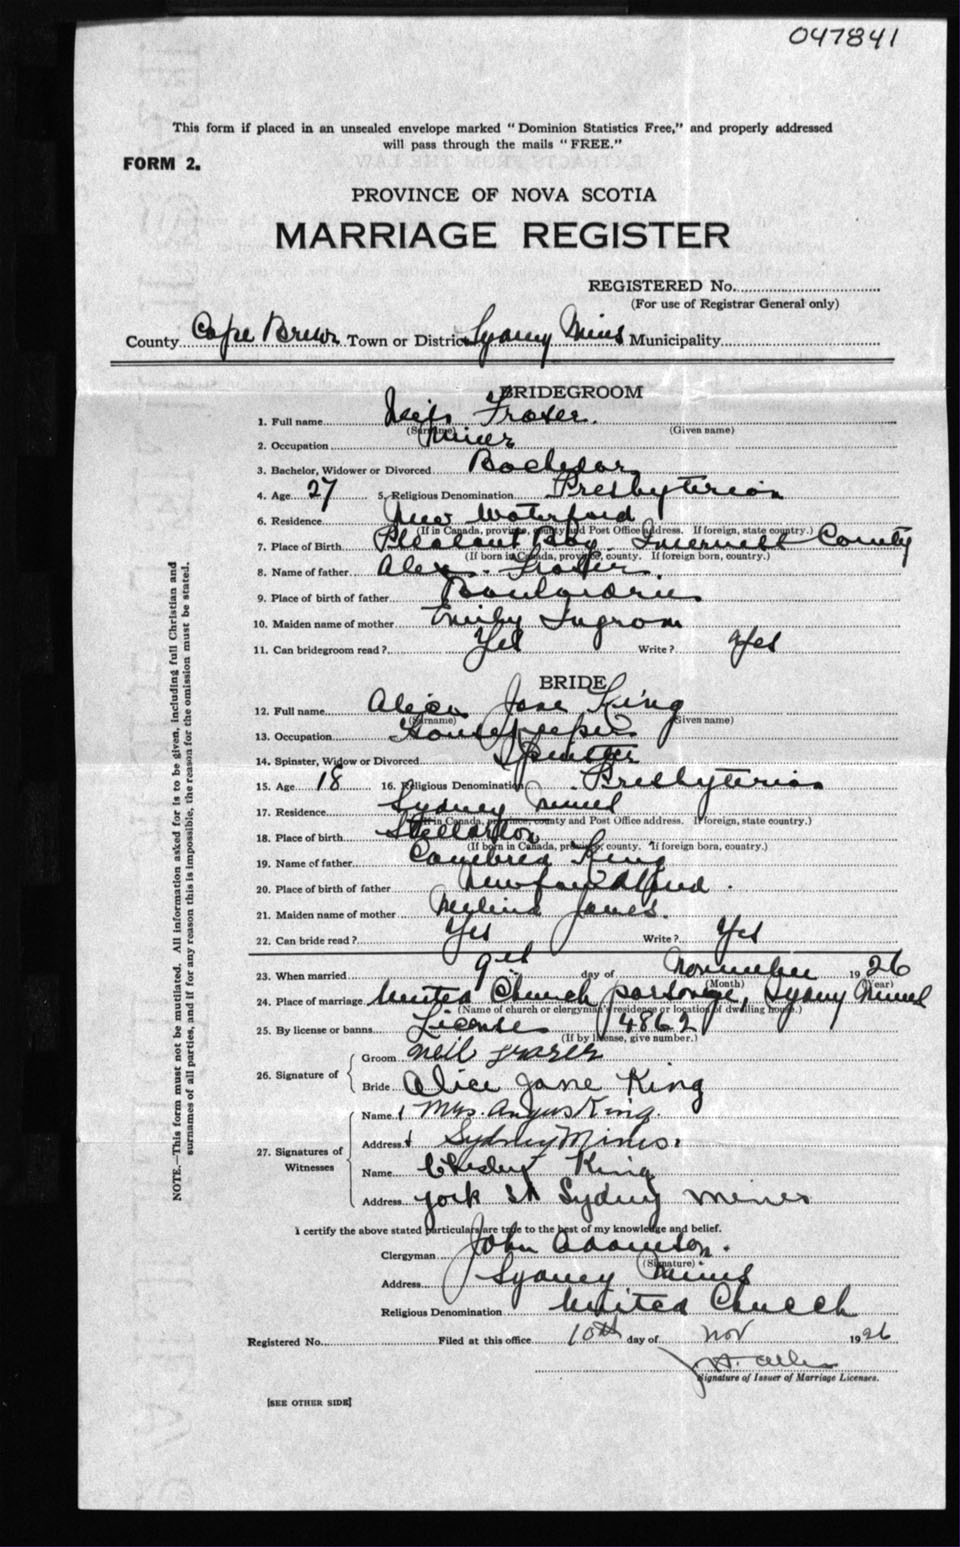 047841
This form if placed in an unsealed envelope marked "Dominion Statistics Free," and properly addressed
will pass through the mails "FREE."
FORM 2.
PROVINCE OF NOVA SCOTIA
MARRIAGE REGISTER
REGISTERED No.
(For use of Registrar General only)
County Cape Breton Town or District Sydney Mines Municipality
BRIDEGROOM
1. Full name Neil Fraser
(Surname) (Given name)
2. Occupation Miner
3. Bachelor, Widower or Divorced Bachelor
4. Age 27 5. Religious Denomination Presbyterian
6. Residence New Waterford
(If in Canada, province, county and Post Office address. If foreign, state country.)
7. Place of Birth Pleasant Bay. Inverness County
(If born in Canada, province, county. If foreign born, country.)
8. Name of father Alex. Fraser
9. Place of birth of father Boularderie
10. Maiden name of mother Emily Ingrom
11. Can bridegroom read? Yes Write? Yes
BRIDE
12. Full name Alice Jane King
(Surname) (Given name)
13. Occupation Housekeeper
14. Spinster, Widow or Divorced Spinster
15. Age 18 16. Religious Denomination Presbyterian
17. Residence Sydney Mines
(If in Canada, province, county and Post Office address. If foreign, state country.)
18. Place of birth Stellarton
(If born in Canada, province, county. If foreign born, country.)
19. Name of father King
20. Place of birth of father Newfoundland
21. Maiden name of mother Jones.
22. Can bride read? Yes Write? Yes
23. When married 9th day of November 1926
(Month) (Year)
24. Place of marriage United Church parsonage, Sydney Mines
(Name of church or clergyman's residence or location of dwelling house.)
25. By license or banns License 4862
(If by license, give number.)
26. Signature of Groom Neil Frazer
Bride Alice Jane King
27. Signatures of Witnesses Name Mrs. Angus King.
Address Sydney Mines.
Name Chesley King
Address York St Sydney Mines
I certify the above stated particulars are true to the best of my knowledge and belief.
Clergyman John
(Signature)
Address Sydney Mines
Religious Denomination United Church
Registered No. Filed at this office 10th day of Nov 1926
Signature of Issuer of Marriage Licenses.
[SEE OTHER SIDE]
NOTE.—This form must not be mutilated. All information asked for is to be given, including full Christian and
surnames of all parties, and if for any reason this is impossible, the reason for the omission must be stated.